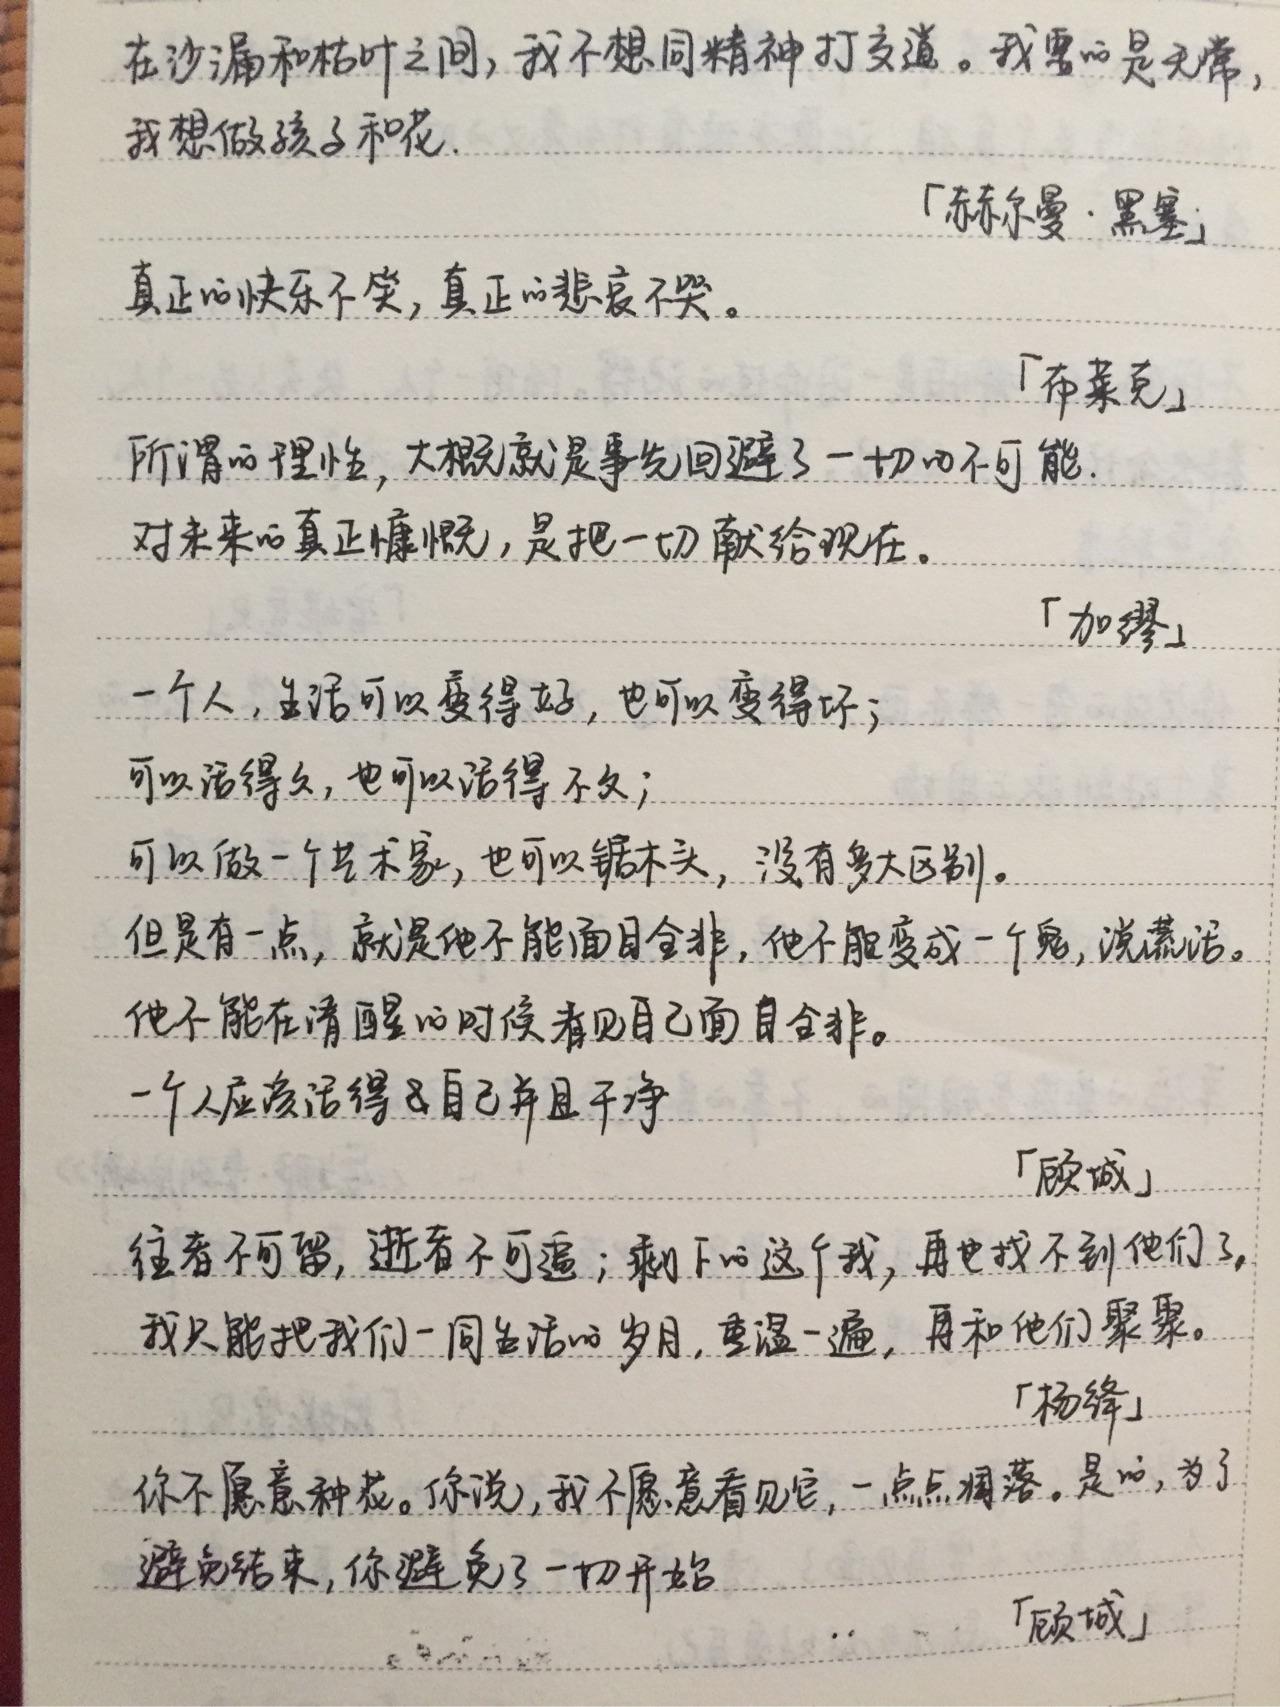 在沙漏和枯叶之间，我不想同精神打交道。我要的是无常，
我想做孩子和花.
「赫尔曼·黑塞」
真正的快乐不笑，真正的悲哀不哭。
「布莱克」
所谓的理性，大概就是事先回避了一切的不可能.
对未来的真正慷慨，是把一切献给现在。
「加缪」
一个人，生活可以变得好，也可以变得坏；
可以活得久，也可以活得不久；
可以做一个艺术家，也可以锯木头，没有多大区别。
但是有一点，就是他不能面目全非，他不能变成一个鬼，说谎话。
他不能在清醒的时候看见自己面目全非。
一个人应该活得是自己并且干净
「顾城」
往者不可留，逝者不可追；剩下的这个我，再也找不到他们了，
我只能把我们一同生活的岁月，重温一遍，再和他们聚聚。
「杨绛」
你不愿意种花。你说，我不愿意看见它，一点点凋落。是的，为了
避免结束，你避免了一切开始
「顾城」